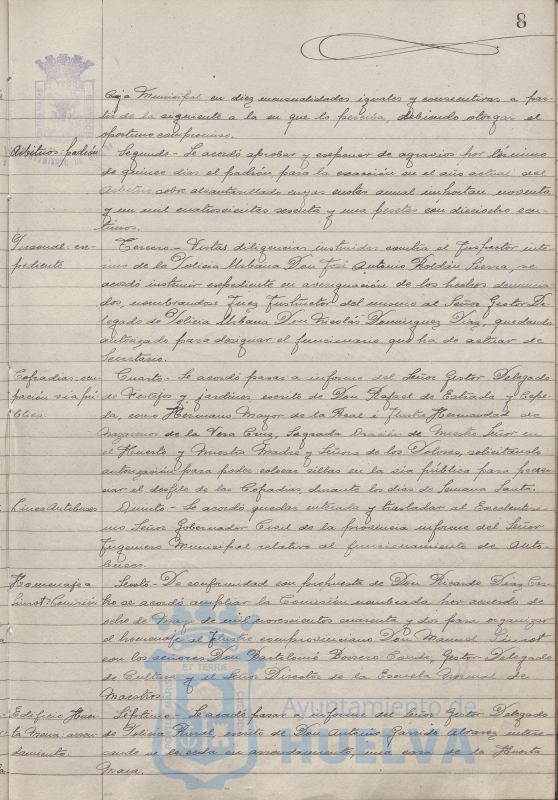 8
Caja Municipal en diez mensualidades iguales y consecutivas a par-
tir de la siguiente a la en que lo perciba, debiendo otorgar el
oportuno compromiso.
Arbitrios: padrón
Segundo.- Se acordó aprobar y exponer de agravios por término
de quince días el padrón para la exacción en el año actual del
Arbitrio sobre alcantarillado cuyas cuotas anual importan noventa
y un mil cuatrocientas sesenta y una pesetas con dieciocho cén-
timos.
Personal: ex-
pediente
Tercero.- Vistas diligencias instruidas contra el Inspector inte-
rino de la Policía Urbana Don José Antonio Roldán Sierra, se
acordó instruir expediente en averiguación de los hechos denuncia-
dos, nombrándose Juez Instructor del mismo al Señor Gestor De-
legado de Policía Urbana Don Nicolás Domínguez Díaz, quedando
autorizado para designar el funcionario que ha de actuar de
Secretario.
Cofradías: ocu-
pación vía pú-
blica
Cuarto.- Se acordó pasar a informe del Señor Gestor Delegado
de Festejos y jardines, escrito de Don Rafael de Estrada y Cepe-
da, como Hermano Mayor de la Real e Ilustre Hermandad de
Nazarenos de la Vera Cruz, Sagrada Oración de Nuestro Señor en
el Huerto y Nuestra Madre y Señora de los Dolores, solicitando
autorización para poder colocar sillas en la vía pública para presen-
ciar el desfile de las Cofradías, durante los días de Semana Santa.
Línea Autobuses
Quinto.- Se acordó quedar enterado y trasladar al Excelentísi-
mo Señor Gobernador Civil de la provincia informe del Señor
Ingeniero Municipal relativo al funcionamiento de Auto-
buses.
Homenaje a
Siurot: Comisión
Sexto.- De conformidad con propuesta de Don Ricardo Díaz
se acordó ampliar la Comisión nombrada por acuerdo de
ocho de Mayo de mil novecientos cuarenta y dos para organizar
el homenaje al Ilustre comprovinciano D. Manuel Siurot
con los señores Don Bartolomé Romero Conde, Gestor Delegado
de Cultura y el Señor Director de la Escuela Normal de
Maestros.
Edificio Huer-
ta Mena: arren-
damiento
Séptimo.- Se acordó pasar a informe del Señor Gestor Delegado
de Policía Rural, escrito de Don Antonio Garrido Alvarez intere-
sando se le ceda en arrendamiento, una casa de la Huerta
Mena.
ET TERRA
Ayuntamiento de
HUELVA